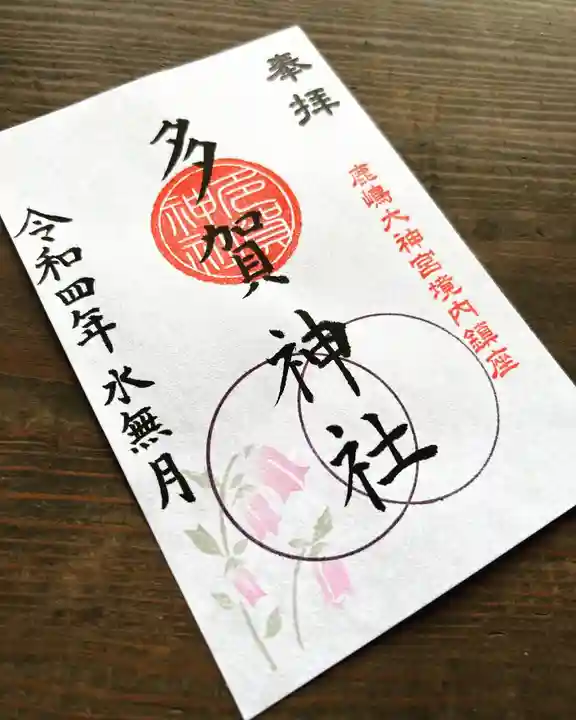 奉拝
鹿嶋大神宮境内鎮座
多賀神社
令和四年水無月